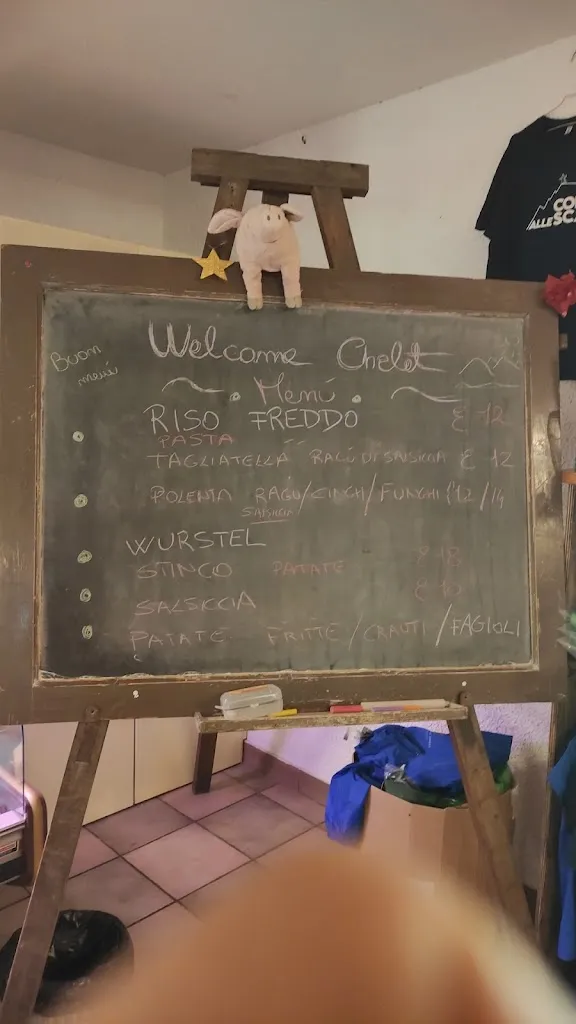 Welcome Chelet
Buon
menù
Menù
RISO FREDDO € 12
PASTA
TAGLIATELLA RAGÙ DI SALSICCIA € 12
POLENTA RAGÙ/CINGH/FUNGHI €12/14
SALSICCIA
WURSTEL
STINCO PATATE € 18
SALSICCIA € 10
PATATE FRITTE/CRAUTI/FAGIOLI
ALLE